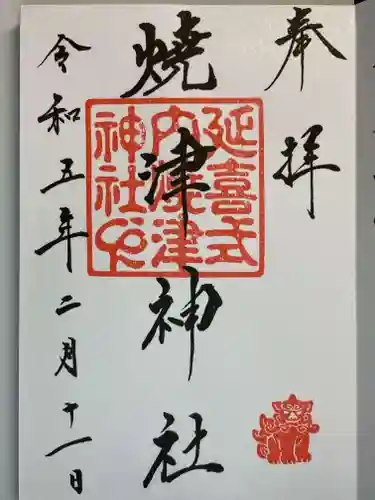 奉拝
燒津神社
延喜式
内焼津
神社
令和五年二月十一日